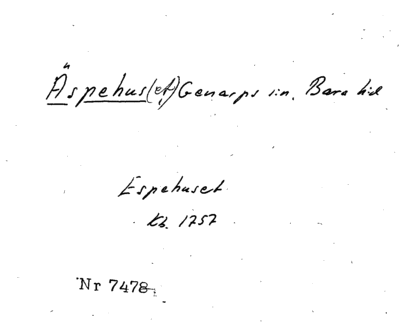 Äspehus(et) Genarps sn. Bara hd
Espehuset
Kb. 1757
Nr 7478